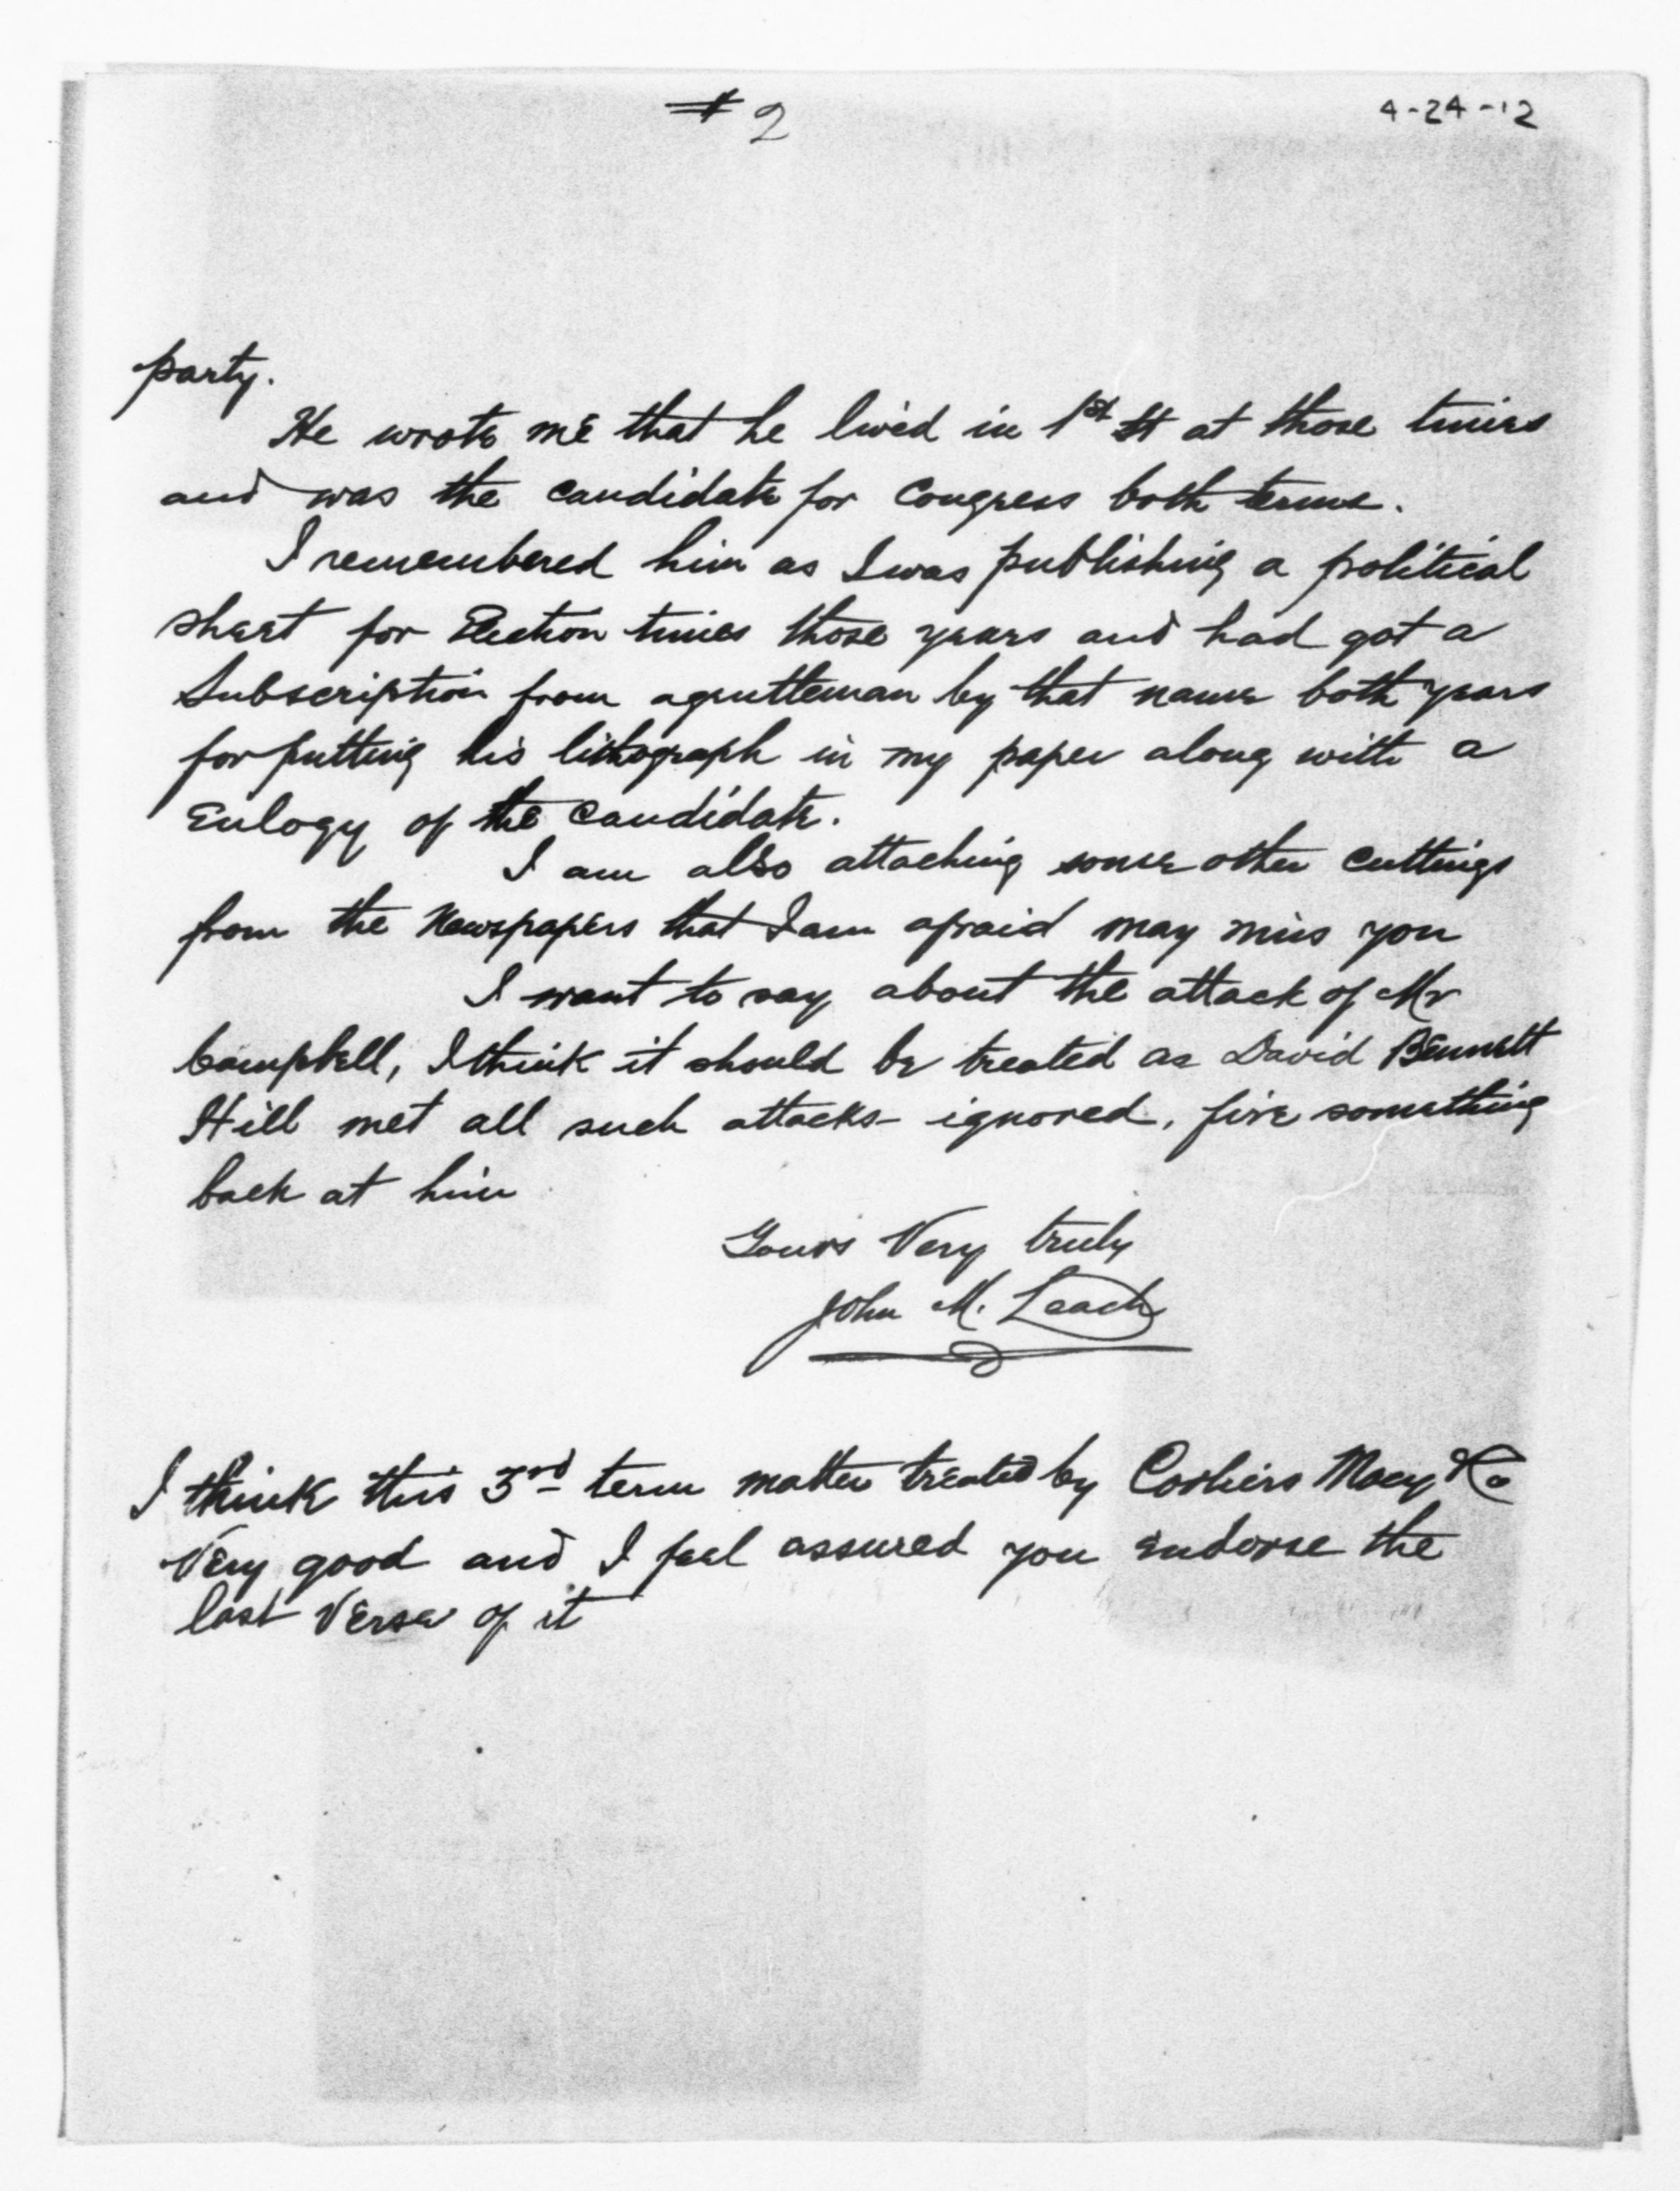 # 2
4-24-12
party.
He wrote me that he lived in 1st St at those times
and was the candidate for Congress both terms.
I remembered him as I was publishing a political
sheet for Election times those years and had got a
Subscription from a gentleman by that name both years
for putting his lithograph in my paper along with a
Eulogy of the candidate.
I am also attaching some other cuttings
from the Newspapers that I am afraid may miss you
I want to say about the attack of Mr
Campbell, I think it should be treated as David Bennett
Hill met all such attacks - ignored, fire something
back at him
Yours Very truly
John M. Leach
I think this 3rd term matter treated by Macy & Co
Very good and I feel assured you endorse the
last Verse of it